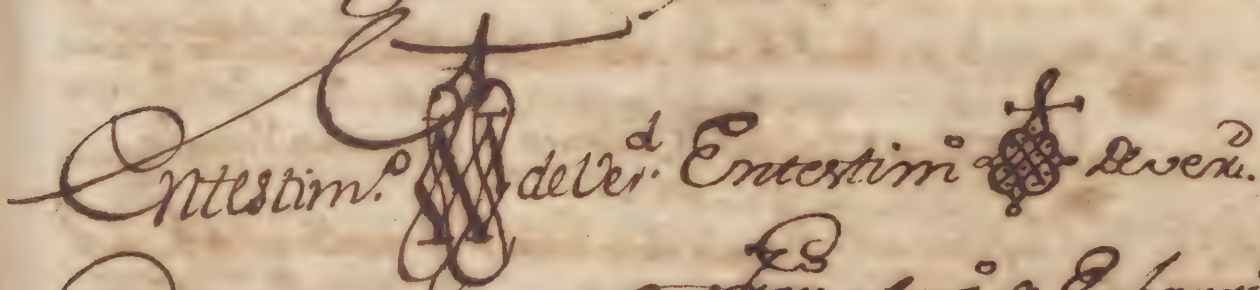 Entestim.º de Ver.d Entestimº de verd.